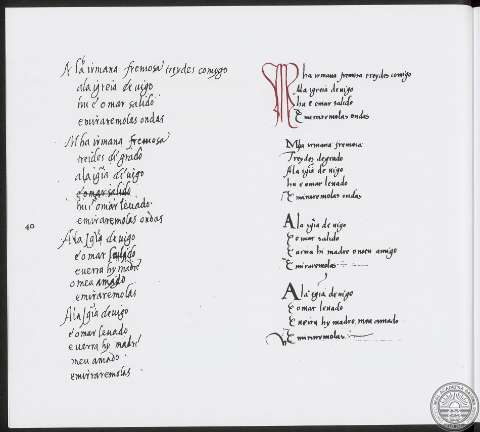 A la irmana fremosa treydes comygo
ala ygreia de uigo
hu e o mar salido
e miraremolas ondas
Mha irmana fremosa
treides de grado
ala ygia de uigo
e o mar salido
hu e o mar leuado
e miraremolas ondas
40
Ala Igia de uigo
e o mar
e uerra hy madre
o meu amado
e miraremolas
Ala Igia de uigo
e o mar leuado
e uerra hy madre
meu amado
e miraremolas
Mha irmana fremosa treydes comigo
Ala ygreia de uigo
hu e o mar salido
E miraremolas ondas
Mha irmana fremosa
Treydes de grado
Ala igia de uigo
hu e o mar leuado
E miraremolas ondas
Ala ygia de uigo
E o mar salido
E uerra hy madre o meu amigo
E miraremolas
Ala igia de uigo
E o mar leuado
E uerra hy madre meu amado
E miraremolas